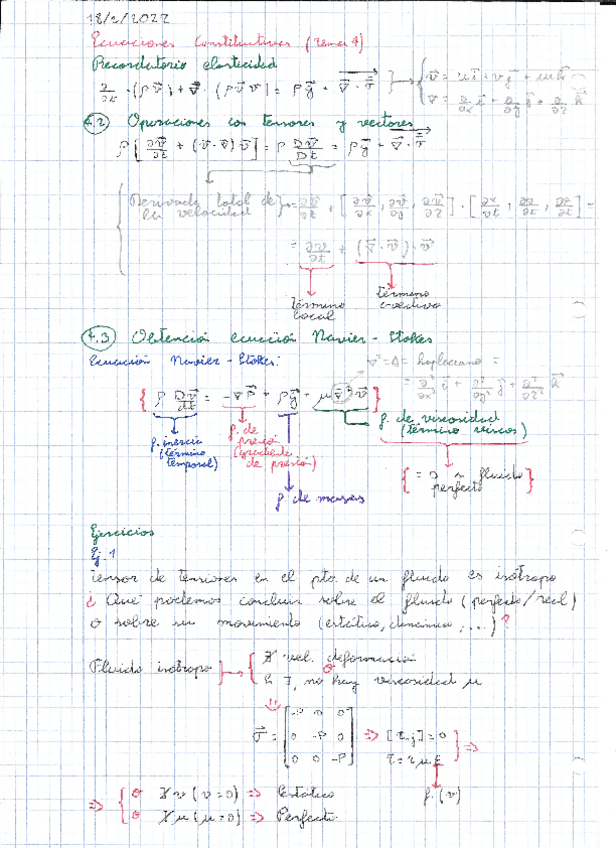 18/2/2022
Ecuaciones Constitutivas (tema 4)
Recordatorio elasticidad
∂/∂t (ρv⃗) + ∇⃗ · (ρv⃗ v⃗) = ρg⃗ + ∇⃗ · σ
v⃗ = u i⃗ + v j⃗ + w k⃗
∇ = ∂/∂x i⃗ + ∂/∂y j⃗ + ∂/∂z k⃗
E.2 Operaciones con tensores y vectores
ρ [∂v⃗/∂t + (v⃗ · ∇) v⃗] = ρ Dv⃗/Dt = ρg⃗ + ∇⃗ · σ
Derivada total de la velocidad
= ∂v⃗/∂t + [∂v⃗/∂x, ∂v⃗/∂y, ∂v⃗/∂z] · [∂x/∂t, ∂y/∂t, ∂z/∂t] =
= ∂v⃗/∂t + (∇⃗ · v⃗) · v⃗
término local
término
E.3 Obtención ecuación Navier-Stokes
Ecuación Navier-Stokes:
∇² = Δ = laplaciano =
= ∂²/∂x² i⃗ + ∂²/∂y² j⃗ + ∂²/∂z² k⃗
{ρ Dv⃗/Dt = -∇P + ρg⃗ + μ∇²v⃗}
f. inercia (término temporal)
f. de presión (gradiente de presión)
f. de viscosidad (término viscoso)
f. de masas
{= 0 en fluido perfecto}
Ejercicios
Ej. 1
Tensor de tensiones en el pto. de un fluido es isótropo
¿Qué podemos concluir sobre el fluido (perfecto/real)
o sobre su movimiento (estático, dinámico, ...)?
Fluido isótropo
∄ vel. deformación
o
si ∃, no hay viscosidad μ
σ = [-P 0 0
0 -P 0
0 0 -P] ⇒ [τij] = 0
τ = 2με
f.(v)
⇒ ∄ v (v=0) ⇒ Estático
∄ μ (μ=0) ⇒ Perfecto